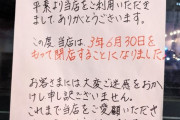 平素より当店をご利用いただき
まして、ありがとうございます。
この度 当店は、3年6月30日を
もって閉店することになりました。
お客さまには大変ご迷惑をおか
けし申し訳ございません。
これまで当店をご愛顧いただき